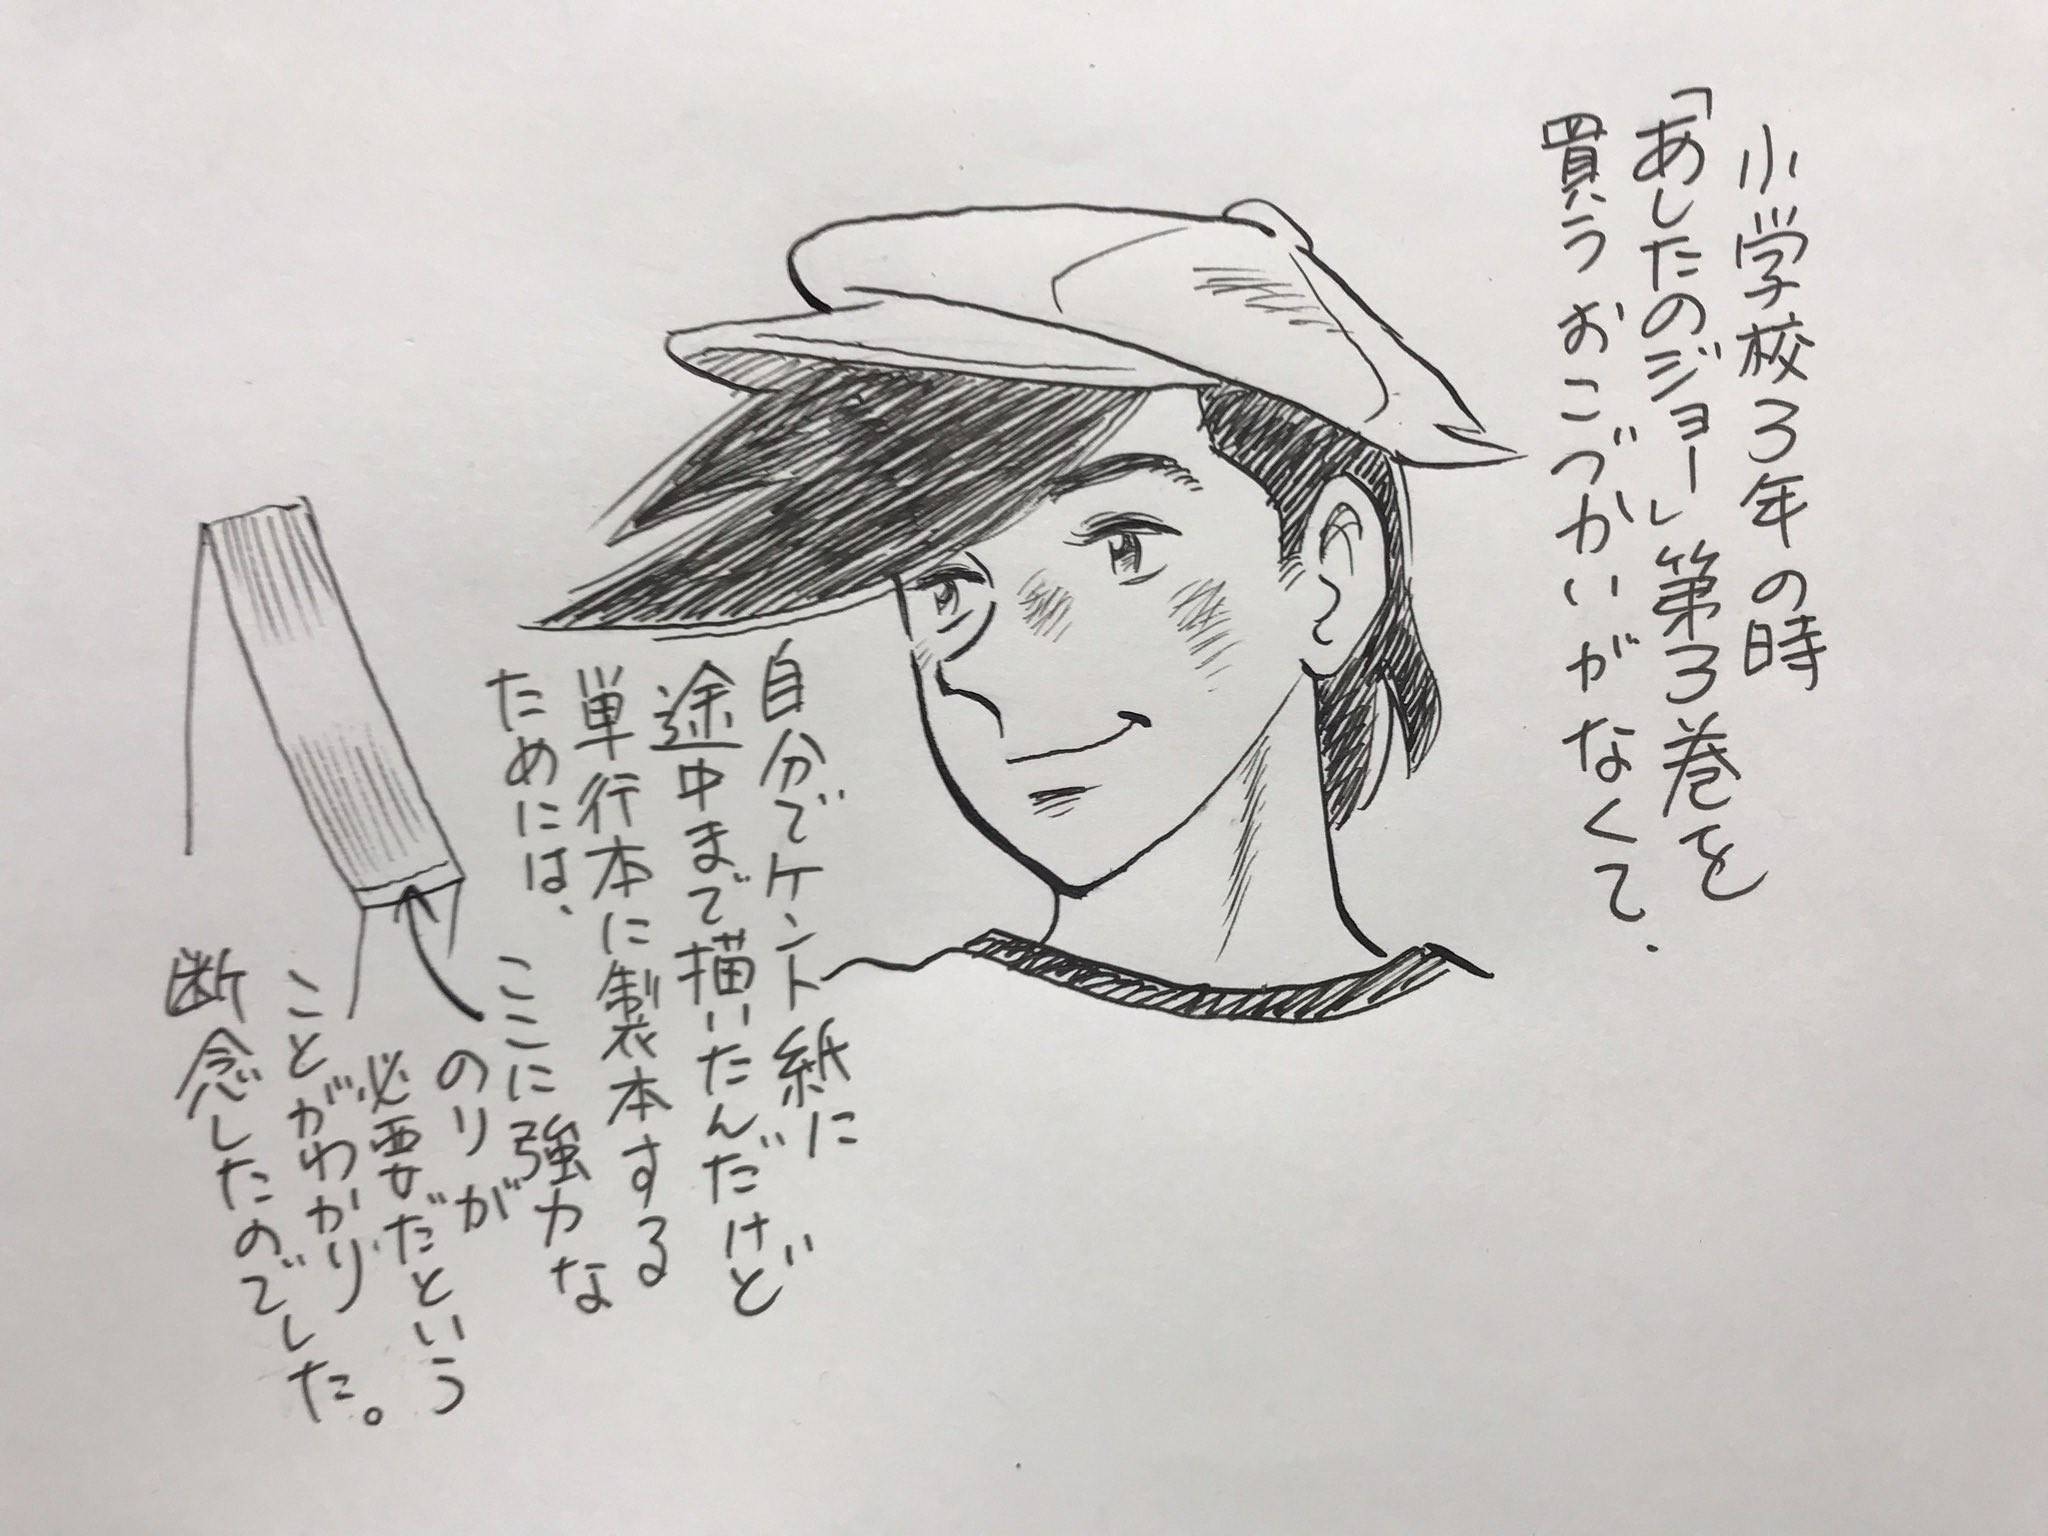 小学校3年の時
「あしたのジョー」第3巻を
買うおこづかいがなくて.
自分でケント紙に
途中まで描いたんだけど
単行本に製本する
ためには、
ここに強力な
のりが
必要だという
ことがわかり
断念したのでした。